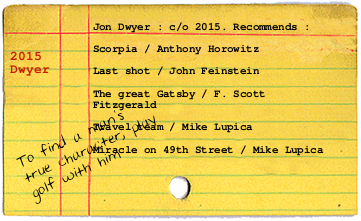 Jon Dwyer : c/o 2015. Recommends :
2015
Dwyer
Scorpia / Anthony Horowitz
Last shot / John Feinstein
The great Gatsby / F. Scott
Fitzgerald
Travel team / Mike Lupica
Miracle on 49th Street / Mike Lupica
To find a man's
true character, play
golf with him